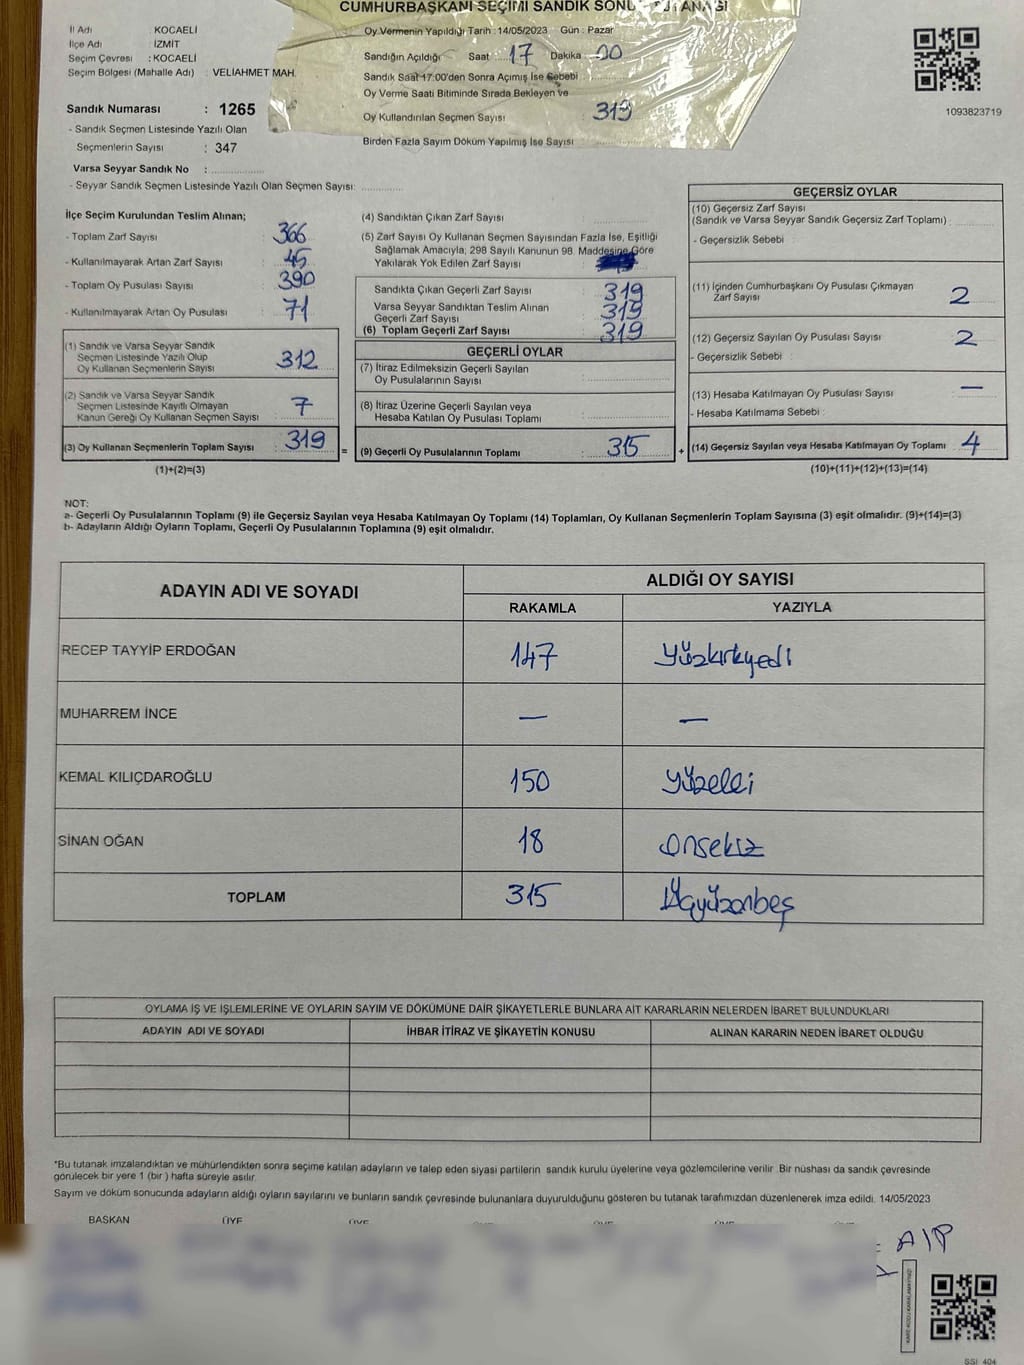 CUMHURBAŞKANI SEÇİMİ SANDIK
İl Adı KOCAELİ
İlçe Adı İZMİT
Seçim Çevresi : KOCAELİ
Seçim Bölgesi (Mahalle Adı) : VELİAHMET MAH.
Sandık Numarası : 1265
- Sandık Seçmen Listesinde Yazılı Olan
Seçmenlerin Sayısı : 347
Varsa Seyyar Sandık No :
- Seyyar Sandık Seçmen Listesinde Yazılı Olan Seçmen Sayısı:
Oy Vermenin Yapıldığı Tarih : 14/05/2023 Gün : Pazar
Sandığın Açıldığı Saat : 17 Dakika 00
Sandık Saat 17:00'den Sonra Açımış İse Sebebi
Oy Verme Saati Bitiminde Sırada Bekleyen ve
Oy Kullandırılan Seçmen Sayısı : 319
Birden Fazla Sayım Döküm Yapılmış İse Sayısı
1093823719
İlçe Seçim Kurulundan Teslim Alınan;
- Toplam Zarf Sayısı : 366
- Kullanılmayarak Artan Zarf Sayısı : 45
- Toplam Oy Pusulası Sayısı : 390
- Kullanılmayarak Artan Oy Pusulası : 71
(1) Sandık ve Varsa Seyyar Sandık
Seçmen Listesinde Yazılı Olup
Oy Kullanan Seçmenlerin Sayısı : 312
(2) Sandık ve Varsa Seyyar Sandık
Seçmen Listesinde Kayıtlı Olmayan
Kanun Gereği Oy Kullanan Seçmen Sayısı : 7
(3) Oy Kullanan Seçmenlerin Toplam Sayısı : 319
(1)+(2)=(3)
=
(4) Sandıktan Çıkan Zarf Sayısı :
(5) Zarf Sayısı Oy Kullanan Seçmen Sayısından Fazla İse, Eşitliği
Sağlamak Amacıyla, 298 Sayılı Kanunun 98. Maddesine Göre
Yakılarak Yok Edilen Zarf Sayısı :
Sandıkta Çıkan Geçerli Zarf Sayısı : 319
Varsa Seyyar Sandıktan Teslim Alınan
Geçerli Zarf Sayısı : 319
(6) Toplam Geçerli Zarf Sayısı : 319
GEÇERLİ OYLAR
(7) İtiraz Edilmeksizin Geçerli Sayılan
Oy Pusulalarının Sayısı :
(8) İtiraz Üzerine Geçerli Sayılan veya
Hesaba Katılan Oy Pusulası Toplamı :
(9) Geçerli Oy Pusulalarının Toplamı : 315
+
GEÇERSİZ OYLAR
(10) Geçersiz Zarf Sayısı
(Sandık ve Varsa Seyyar Sandık Geçersiz Zarf Toplamı) :
- Geçersizlik Sebebi :
(11) İçinden Cumhurbaşkanı Oy Pusulası Çıkmayan
Zarf Sayısı : 2
(12) Geçersiz Sayılan Oy Pusulası Sayısı : 2
- Geçersizlik Sebebi :
(13) Hesaba Katılmayan Oy Pusulası Sayısı : —
- Hesaba Katılmama Sebebi :
(14) Geçersiz Sayılan veya Hesaba Katılmayan Oy Toplamı : 4
(10)+(11)+(12)+(13)=(14)
NOT:
a- Geçerli Oy Pusulalarının Toplamı (9) ile Geçersiz Sayılan veya Hesaba Katılmayan Oy Toplamı (14) Toplamları, Oy Kullanan Seçmenlerin Toplam Sayısına (3) eşit olmalıdır. (9)+(14)=(3)
b- Adayların Aldığı Oyların Toplamı, Geçerli Oy Pusulalarının Toplamına (9) eşit olmalıdır.
ADAYIN ADI VE SOYADI ALDIĞI OY SAYISI
RAKAMLA YAZIYLA
RECEP TAYYİP ERDOĞAN 147 yüzkırkyedi
MUHARREM İNCE — —
KEMAL KILIÇDAROĞLU 150 yüzelli
SİNAN OĞAN 18 onsekiz
TOPLAM 315 üçyüzonbeş
OYLAMA İŞ VE İŞLEMLERİNE VE OYLARIN SAYIM VE DÖKÜMÜNE DAİR ŞİKAYETLERLE BUNLARA AİT KARARLARIN NELERDEN İBARET BULUNDUKLARI
ADAYIN ADI VE SOYADI İHBAR İTİRAZ VE ŞİKAYETİN KONUSU ALINAN KARARIN NEDEN İBARET OLDUĞU
*Bu tutanak imzalandıktan ve mühürlendikten sonra seçime katılan adayların ve talep eden siyasi partilerin sandık kurulu üyelerine veya gözlemcilerine verilir. Bir nüshası da sandık çevresinde
görülecek bir yere 1 (bir ) hafta süreyle asılır.
Sayım ve döküm sonucunda adayların aldığı oyların sayılarını ve bunların sandık çevresinde bulunanlara duyurulduğunu gösteren bu tutanak tarafımızdan düzenlenerek imza edildi. 14/05/2023
BAŞKAN ÜYE ÜYE ÜYE ÜYE ÜYE ÜYE
SSİ 404